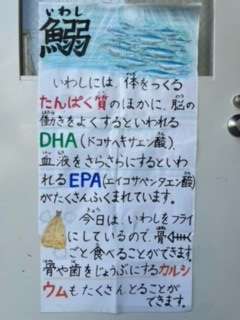 いわし
鰯
いわしには、体をつくる
たんぱく質のほかに、脳の
働きをよくするといわれる
DHA(ドコサヘキサエン酸)、
血液をさらさらにするといわ
れるEPA(エイコサペンタエン酸)
がたくさんふくまれています。
今日は、いわしをフライ
にしているので、骨
ごと食べることができます。
骨や歯をじょうぶにするカルシ
ウムもたくさんとることが
できます。